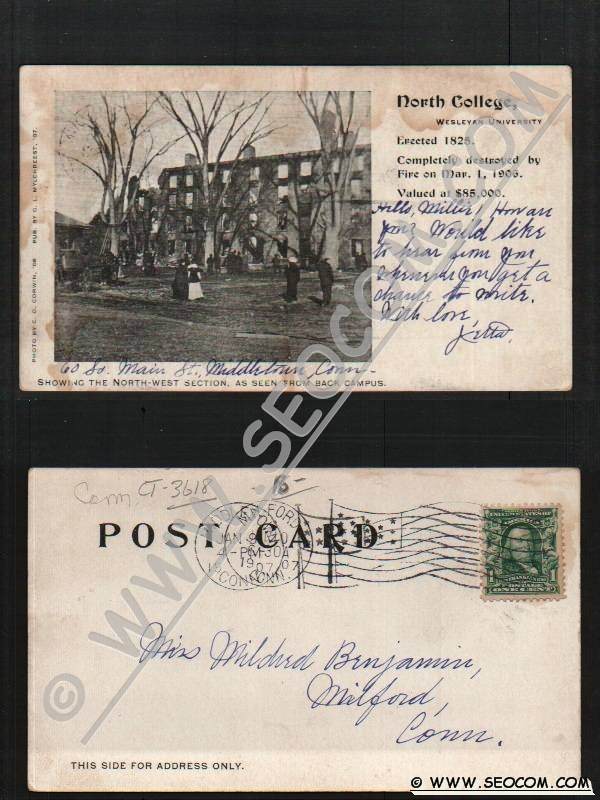 North College,
WESLEYAN UNIVERSITY
Erected 1825.
Completely destroyed by
Fire on Mar. 1, 1906.
Valued at $85,000.
Hello, Millie! How are
you? Would like
to hear from you
whenever you get a
chance to write.
With love
PHOTO BY C. O. CORWIN, '08 PUB. BY G. L. MYLCHREEST, '07.
60 So. Main St., Middletown, Conn-
SHOWING THE NORTH-WEST SECTION, AS SEEN FROM BACK CAMPUS.
WWW.SEOCOM.COM
Conn CT-3618 6-
POST CARD
MILFORD
JAN
1907
CONN.
1 ONE CENT 1
Miss Mildred Benjamin,
Milford,
Conn.
THIS SIDE FOR ADDRESS ONLY.
© WWW.SEOCOM.COM